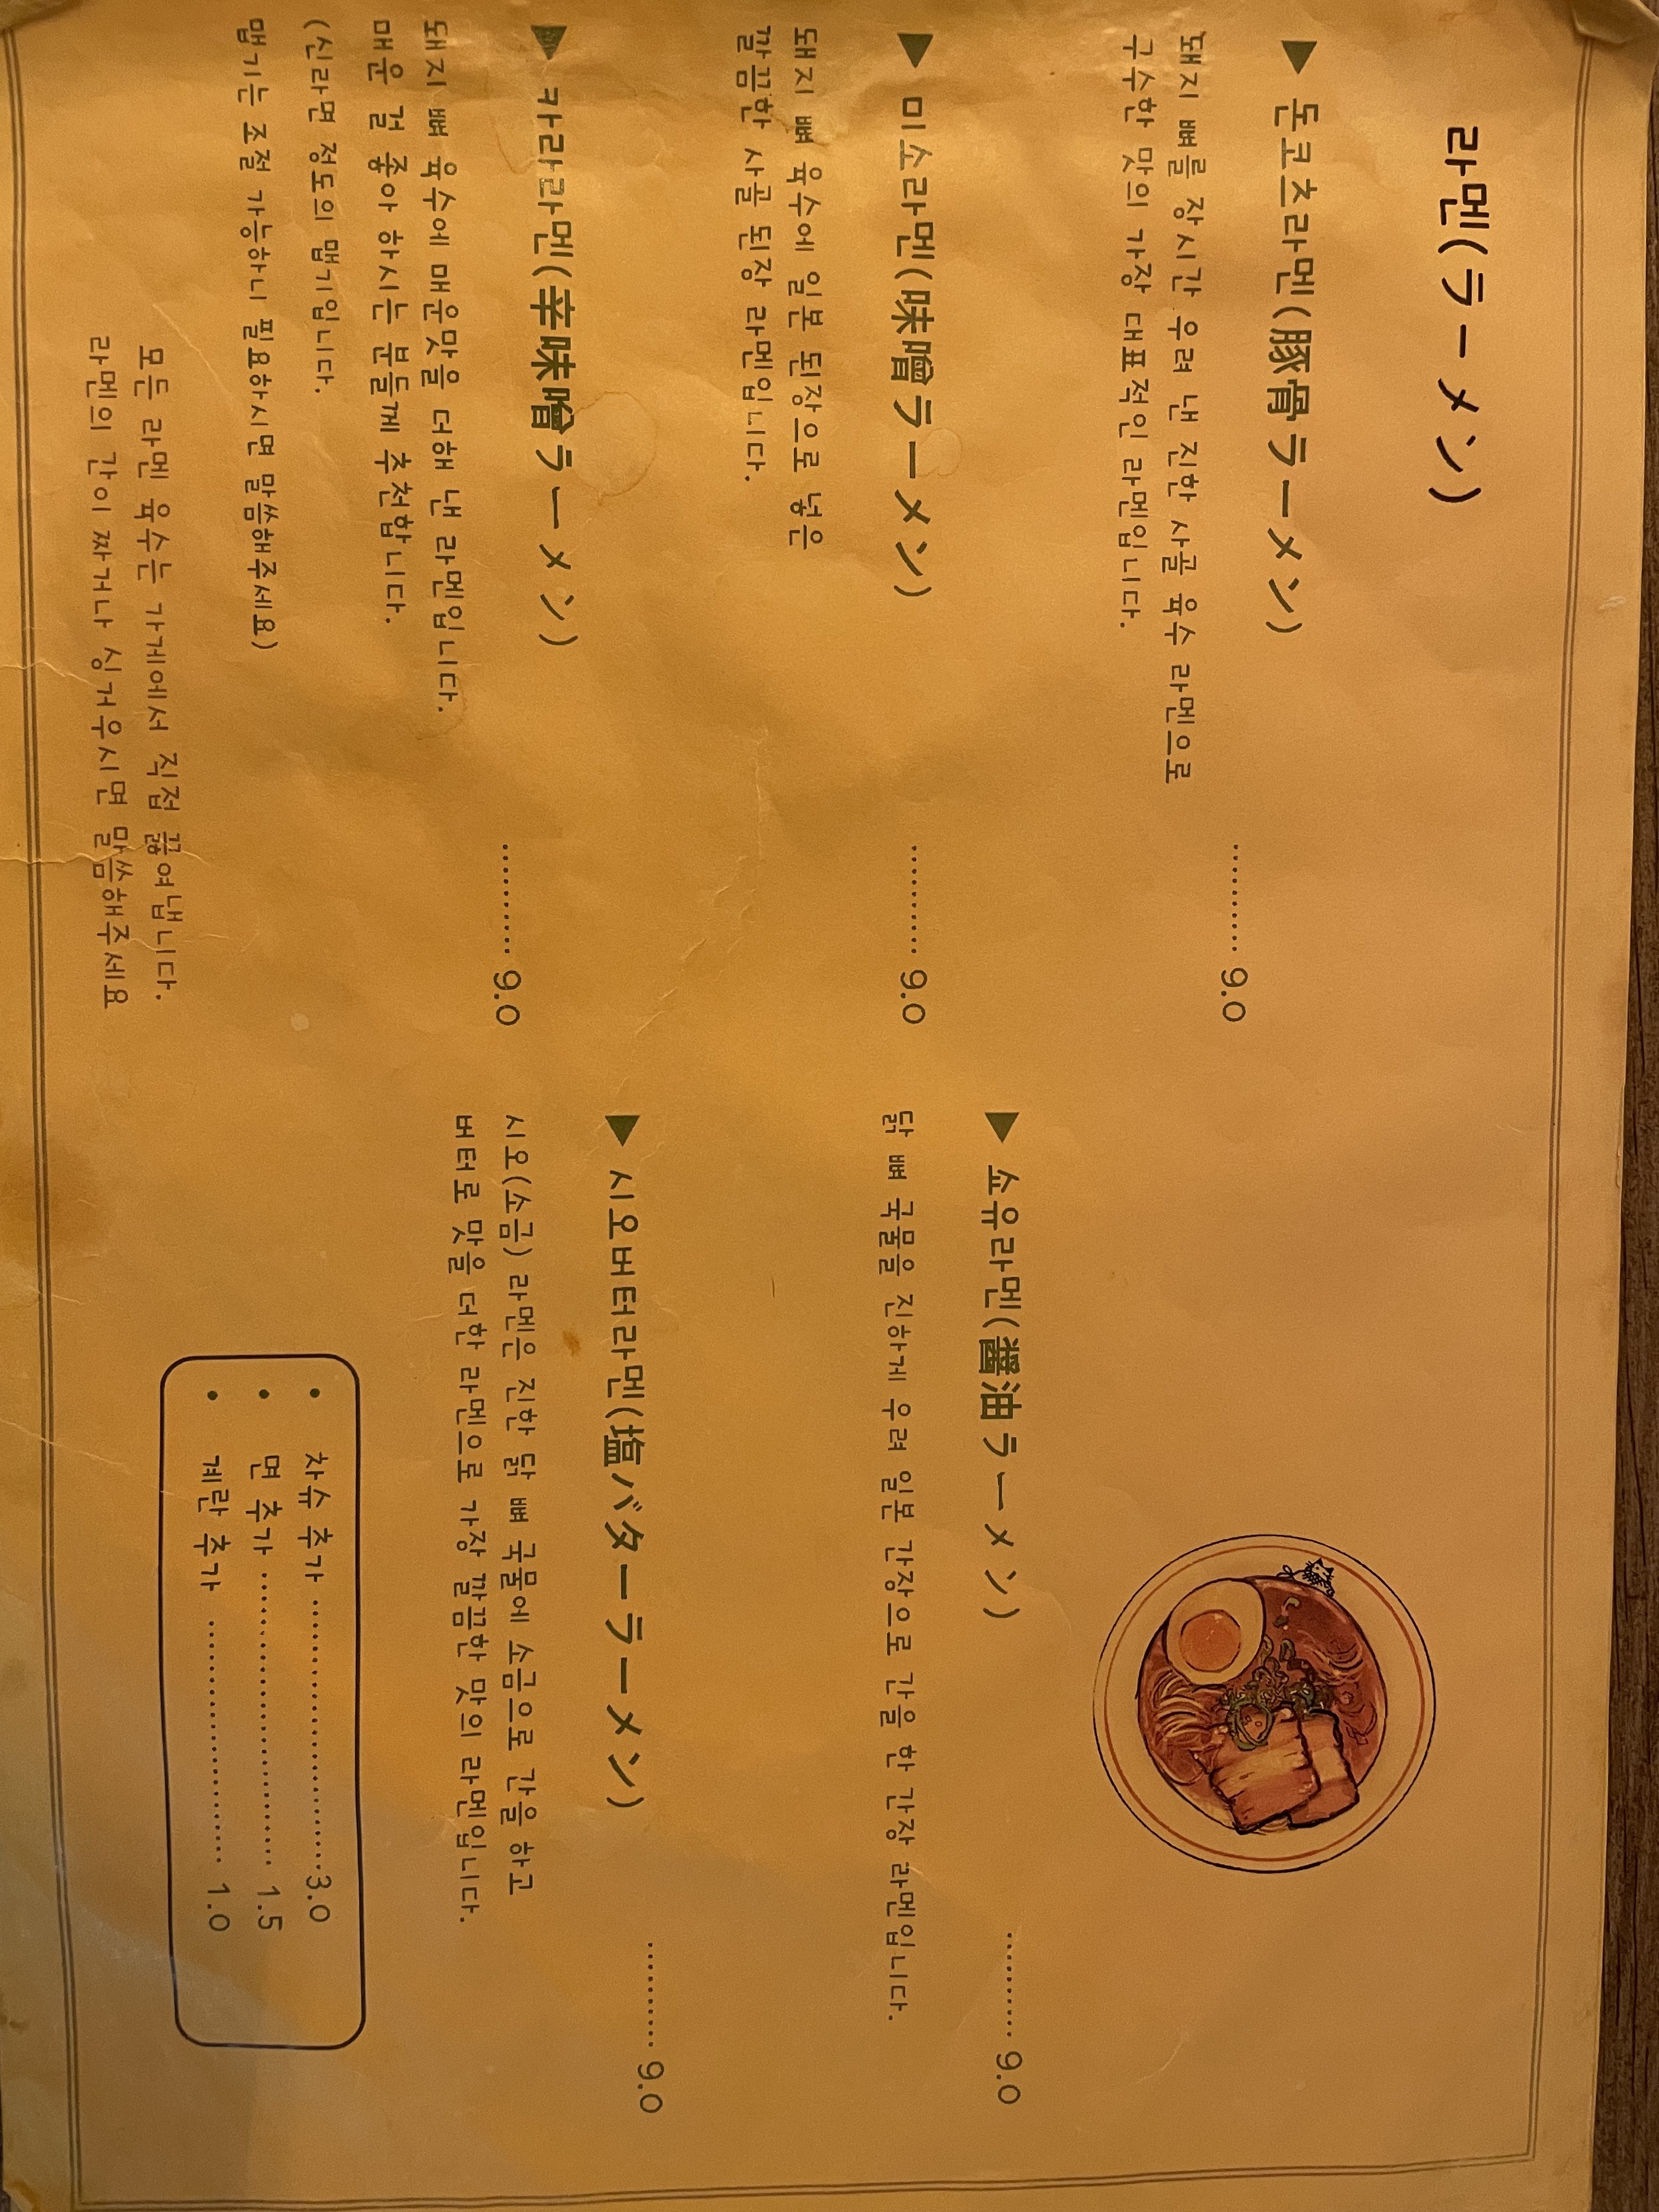 라멘(ラーメン)
▶ 돈코츠라멘(豚骨ラーメン)
돼지 뼈를 장시간 우려 낸 진한 사골 육수 라멘으로
구수한 맛의 가장 대표적인 라멘입니다.
.......... 9.0
▶ 미소라멘(味噌ラーメン)
돼지 뼈 육수에 일본 된장으로 넣은
깔끔한 사골 된장 라멘입니다.
.......... 9.0
▶ 카라라멘(辛味噌ラーメン)
돼지 뼈 육수에 매운맛을 더해 낸 라멘입니다.
매운 걸 좋아 하시는 분들께 추천합니다.
(신라면 정도의 맵기입니다.
맵기는 조절 가능하니 필요하시면 말씀해주세요)
.......... 9.0
모든 라멘 육수는 가게에서 직접 끓여냅니다.
라멘의 간이 짜거나 싱거우시면 말씀해주세요
▶ 쇼유라멘(醤油ラーメン)
닭 뼈 국물을 진하게 우려 일본 간장으로 간을 한 간장 라멘입니다.
.......... 9.0
▶ 시오버터라멘(塩バターラーメン)
시오(소금) 라멘은 진한 닭 뼈 국물에 소금으로 간을 하고
버터로 맛을 더한 라멘으로 가장 깔끔한 맛의 라멘입니다.
.......... 9.0
• 차슈 추가 ..........................3.0
• 면 추가 ............................ 1.5
• 계란 추가 ....................... 1.0